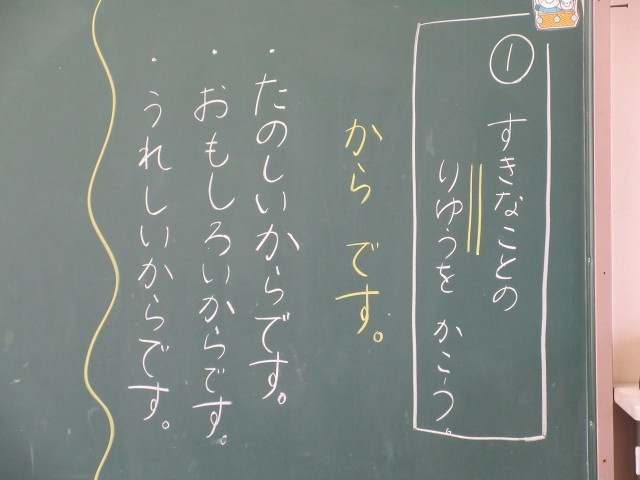 ① すきなことの
りゆうを かこう。
から です。
・たのしいからです。
・おもしろいからです。
・うれしいからです。